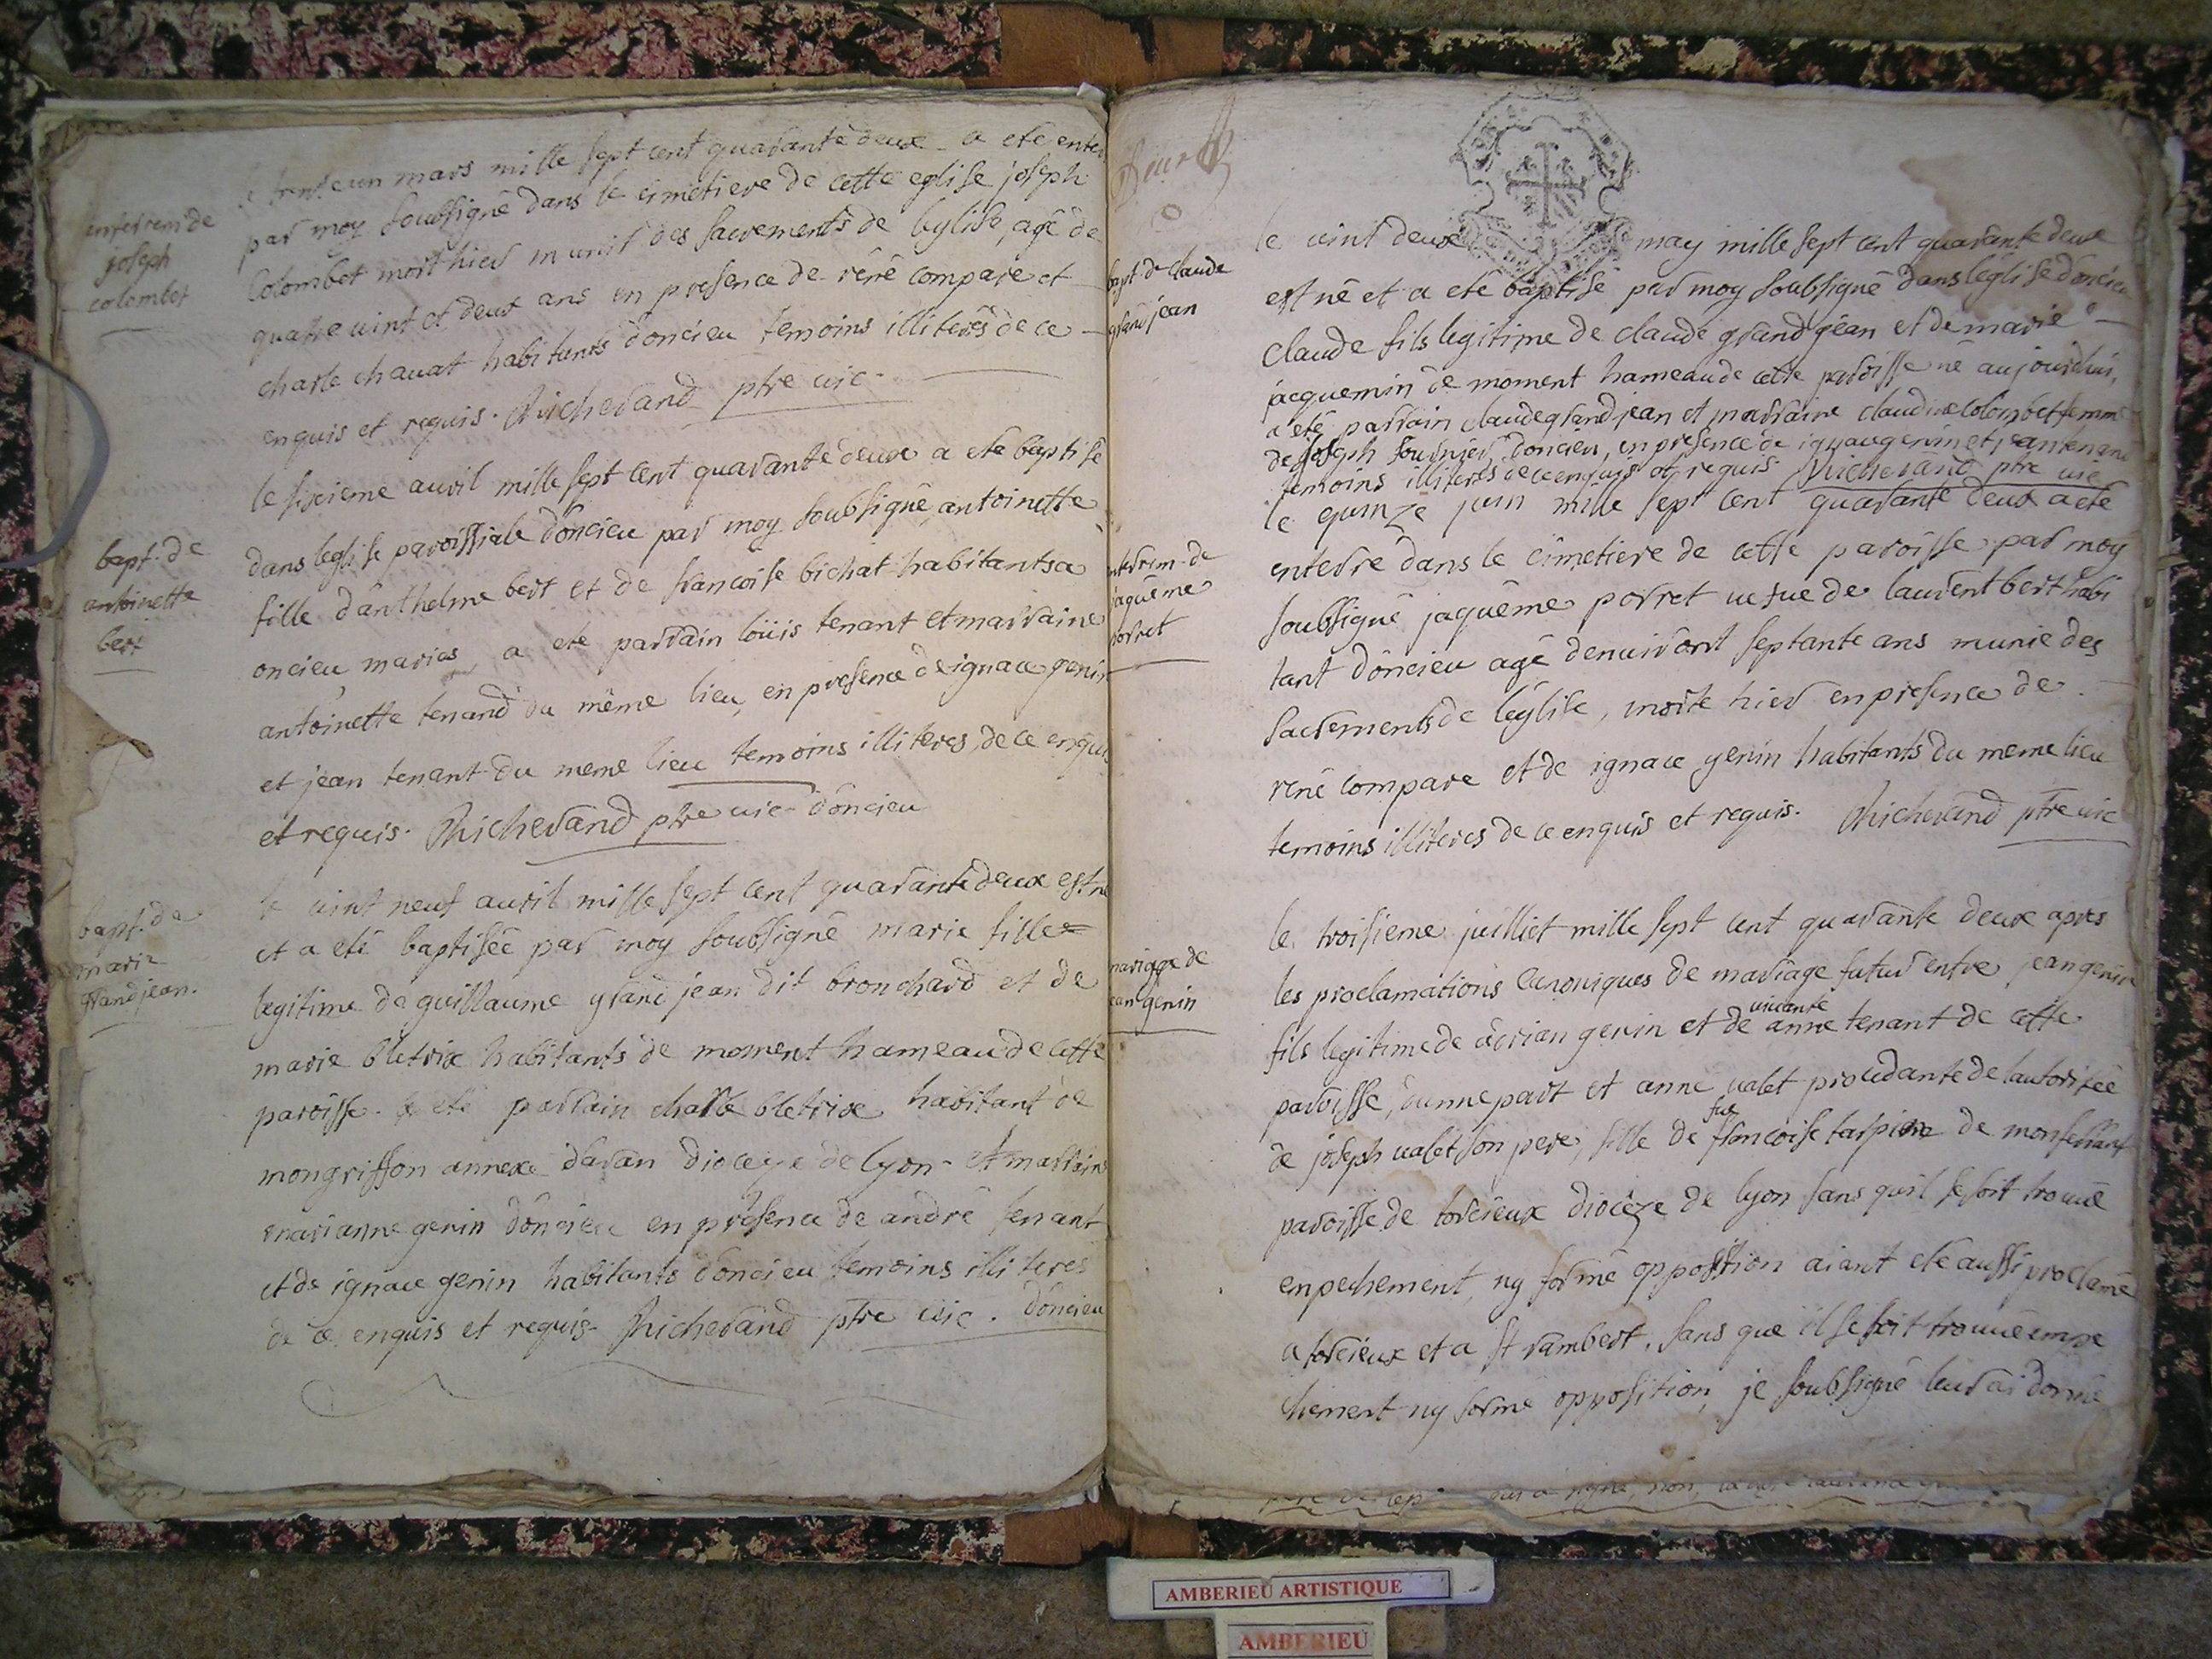 enterrem de
joseph
colombet
le trente un mars mille sept cent quarante deux a ete enter
par moy soubsigné dans le cimetiere de cette eglise joseph
Colombet mort hier munit des sacrements de leglise, agé de
quatre vint et deux ans en presence de réné compare et
charle chavat habitants doncieu temoins illiterés de ce
enquis et requis. Richerand ptre vic.
bapt. de
antoinette
bert
le sixieme avril mille sept cent quarante deux a ete baptisé
dans leglise paroissiale doncieu par moy soubsigné, antoinette
fille danthelme bert et de francoise bichat habitants a
oncieu mariés, a ete parrain loüis tenant et marraine
antoinette tenand du même lieu, en presence de ignace genin
et jean tenant du meme lieu temoins illiteres, de ce enquis
et requis. Richerand ptre vic. doncieu
bapt. de
marie
grandjean.
le vint neuf avril mille sept cent quarante deux est né
et a eté baptisée par moy soubsigné marie fille
legitime de guillaume grand jean dit bronchard et de
marie bletrix habitants de moment hameau de cette
paroisse. a eté parrain charle bletrix habitant de
mongriffon annexe daran dioceze de lyon. et marraine
marianne genin doncieu en presence de andré tenant
et de ignace genin habitants doncieu temoins illiteres
de ce enquis et requis. Richerand ptre vic. doncieu
bapt. de claude
grand jean
le vint deux may mille sept cent quarante deux
est né et a eté baptisé par moy soubsigné dans léglise doncieu
claude fils legitime de claude grand jean et de marie
jacquemin de moment hameau de cette paroisse né aujourdhui,
a été parrain claude grandjean et marraine claudine colombet femme
de joseph fournier, doncieu, en presence de ignace genin et jean tenand
temoins illiterés de ce enquis et requis. Richerand ptre vic
enterrem. de
jaquême
porret
le quinze juin mille sept cent quarante deux a eté
enterré dans le cimetiere de cette paroisse par moy
soubsigné jaquême porret vefve de laurent bert habi
tant doncieu agé denviront septante ans munie des
sacrements de léglise, morte hier en presence de
réné compare et de ignace genin habitants du meme lieu
temoins illiteres de ce enquis et requis. Richerand ptre vic
mariage de
jean genin
le troisieme juilliet mille sept cent quarante deux apres
les proclamations canoniques de mariage futur entre jean genin
fils legitime de adrian genin et de vivante anne tenant de cette
paroisse, dunne part et anne valet procedante de lautorisée
de joseph valet son pere, fille de fue francoise tarpine de monferrant
paroisse de torcieux diocèze de lyon sans quil se soit trouvé
enpechement, ny formé opposition aiant eté aussi proclamé
a torcieux et a st rambert. sans que il se soit trouvé empe
chement ny formé opposition, je soubsigné leur ai donné
AMBERIEU ARTISTIQUE
AMBERIEU